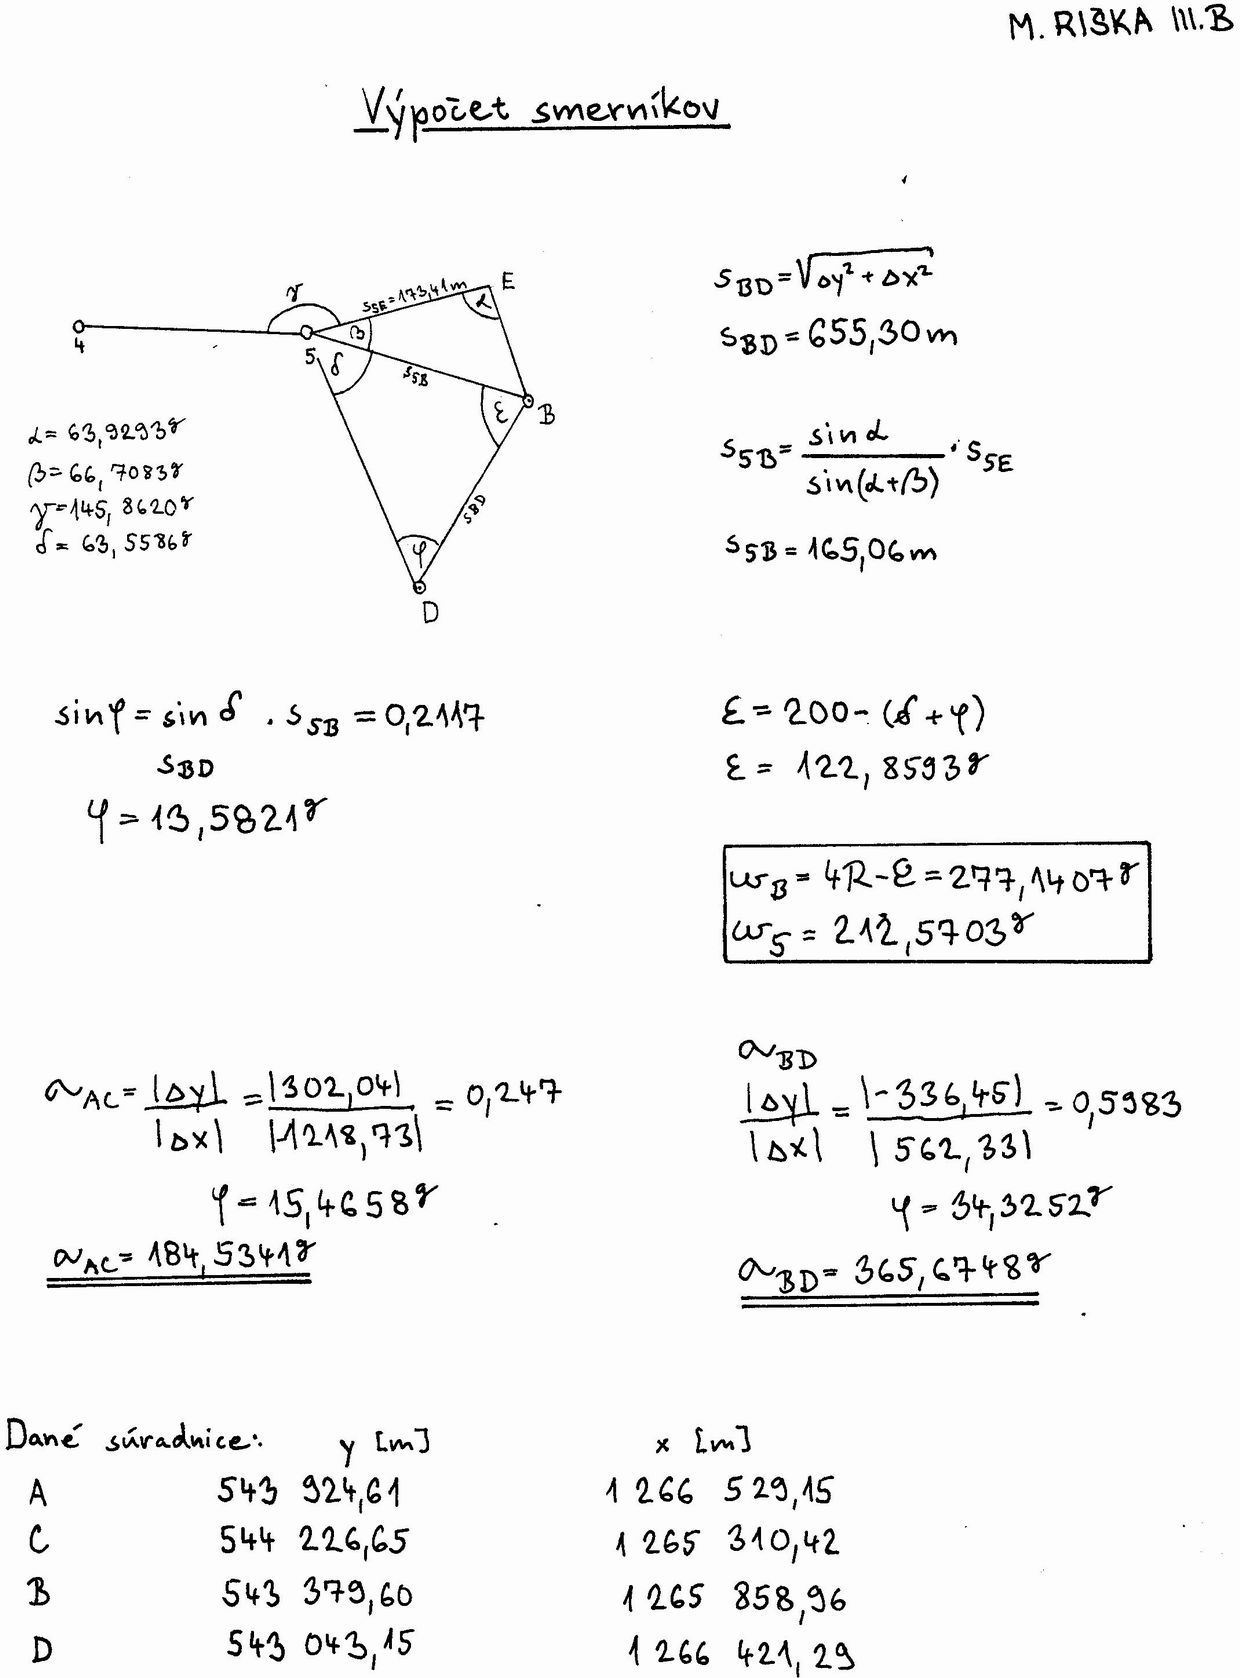 M. RIŠKA III.B
Výpočet smerníkov
γ
s5E=173,41m
E
α
4
5
β
δ
s5B
ε
B
sBD
φ
D
α= 63,9293g
β= 66,7083g
γ=145,8620g
δ= 63,5586g
sBD=√Δy²+Δx²
sBD=655,30m
s5B= sinα / sin(α+β) · s5E
s5B=165,06m
sinφ= sinδ . s5B =0,2117
sBD
φ=13,5821g
ε=200-(δ+φ)
ε= 122,8593g
ωB= 4R-ε=277,1407g
ω5= 212,5703g
αAC= |Δy| / |Δx| = |302,04| / |-1218,73| = 0,247
φ=15,4658g
αAC=184,5341g
αBD
|Δy| / |Δx| = |-336,45| / |562,33| = 0,5983
φ=34,3252g
αBD=365,6748g
Dané súradnice: y [m] x [m]
A 543 924,61 1 266 529,15
C 544 226,65 1 265 310,42
B 543 379,60 1 265 858,96
D 543 043,15 1 266 421,29